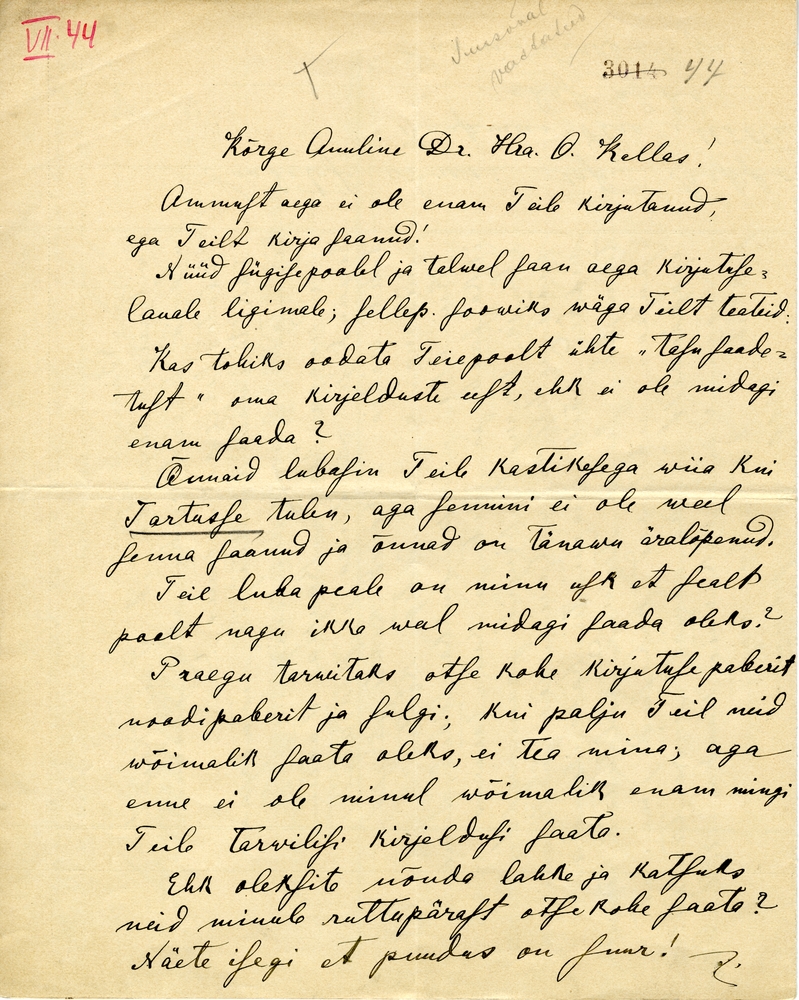 VII. 44
3014 44
Kõrge Auuline Dr. Hra. O. Kallas!
Ammust aega ei ole enam Teile kirjutanud,
ega Teilt kirja saanud!
Nüüd sügisepoolel ja talwel saan aega kirjutuse-
lauale ligimale; sellep. soowiks wäga Teilt teateid.
Kas tohiks oodata Teiepoolt ühte „tasu saade-
tust" oma kirjelduste eest, ehk ei ole midagi
enam saada?
Õunaid lubasin Teile kastikesega wiia kui
Tartusse tulen, aga semini ei ole weel
senna saanud ja õunad on tänawu äralõpenud.
Teie luba peale on minu usk et sealt
poolt nagu ikke weel midagi saada oleks?
Praegu tarwitaks otse kohe kirjutuse paberit
noodipaberit ja sulgi; kui palju Teil neid
wõimalik saata oleks, ei tea mina; aga
enne ei ole minul wõimalik enam mingi
Teile tarwilisi kirjeldusi saata.
Ehk oleksite nõnda lahke ja katsuks
neid minule ruttupärast otse kohe saata?
Näete isegi et puudus on suur!